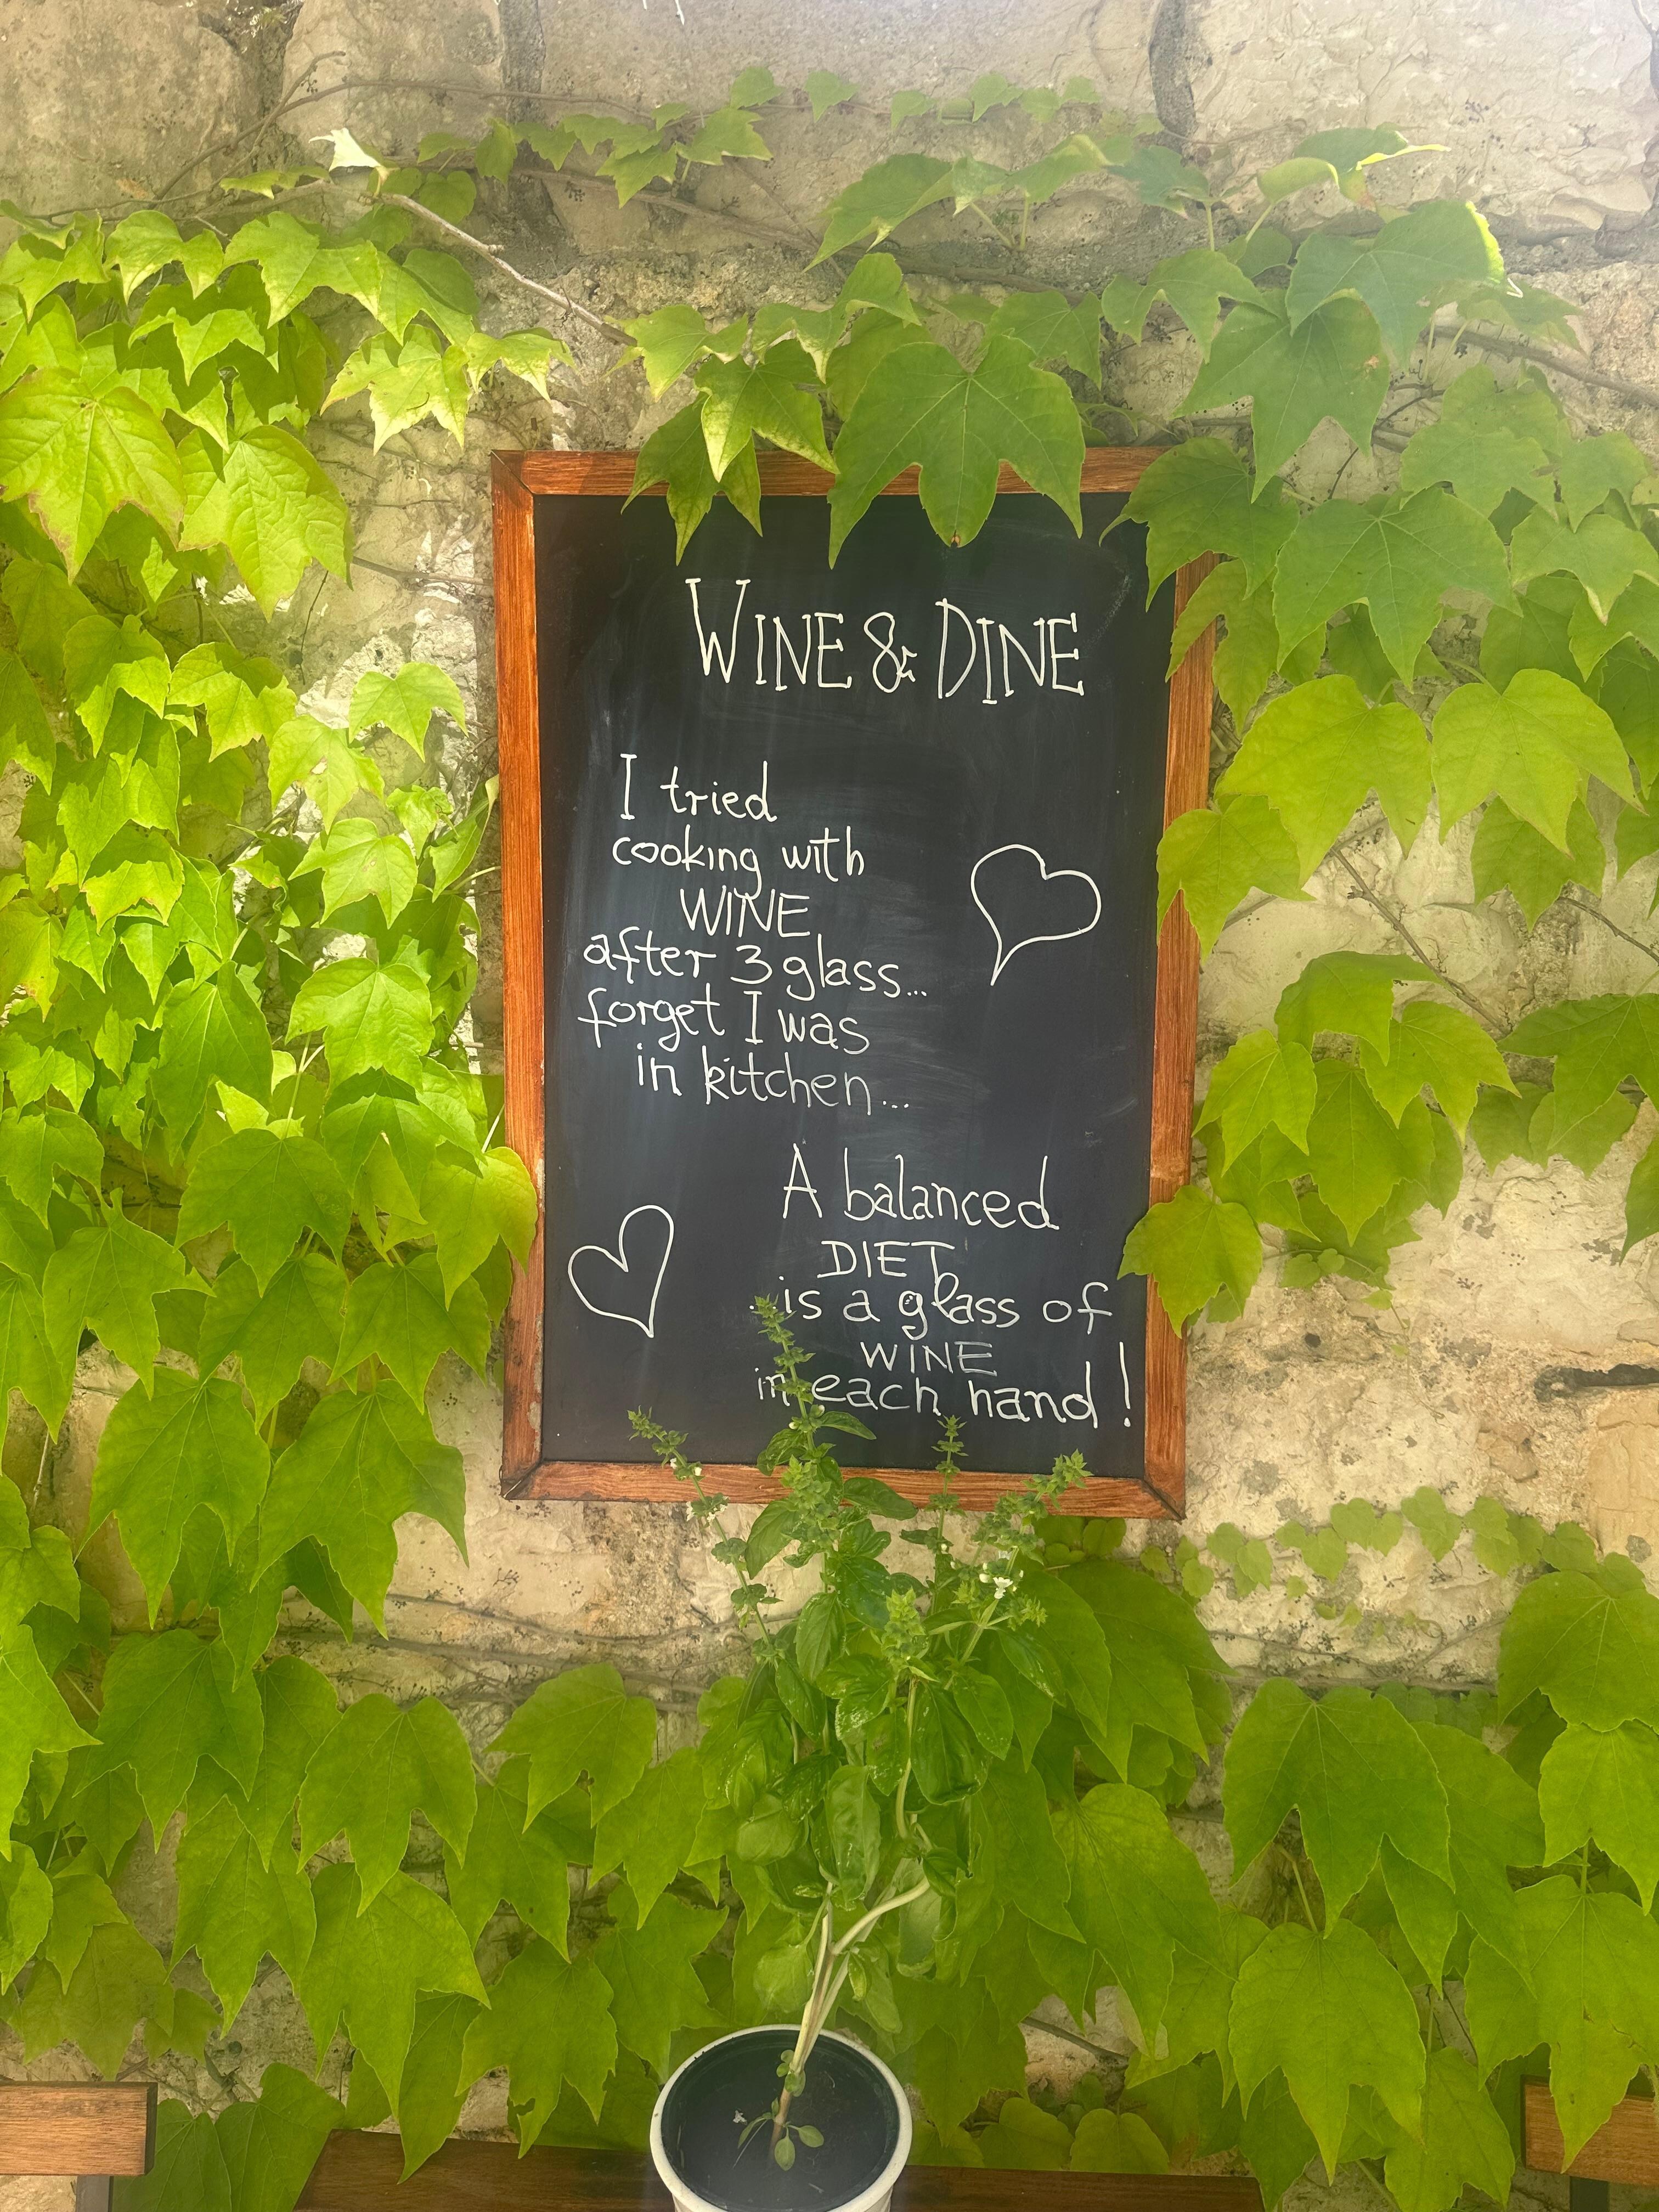 WINE & DINE
I tried
cooking with
WINE
after 3 glass...
forget I was
in kitchen...
A balanced
DIET
..is a glass of
WINE
in each hand!